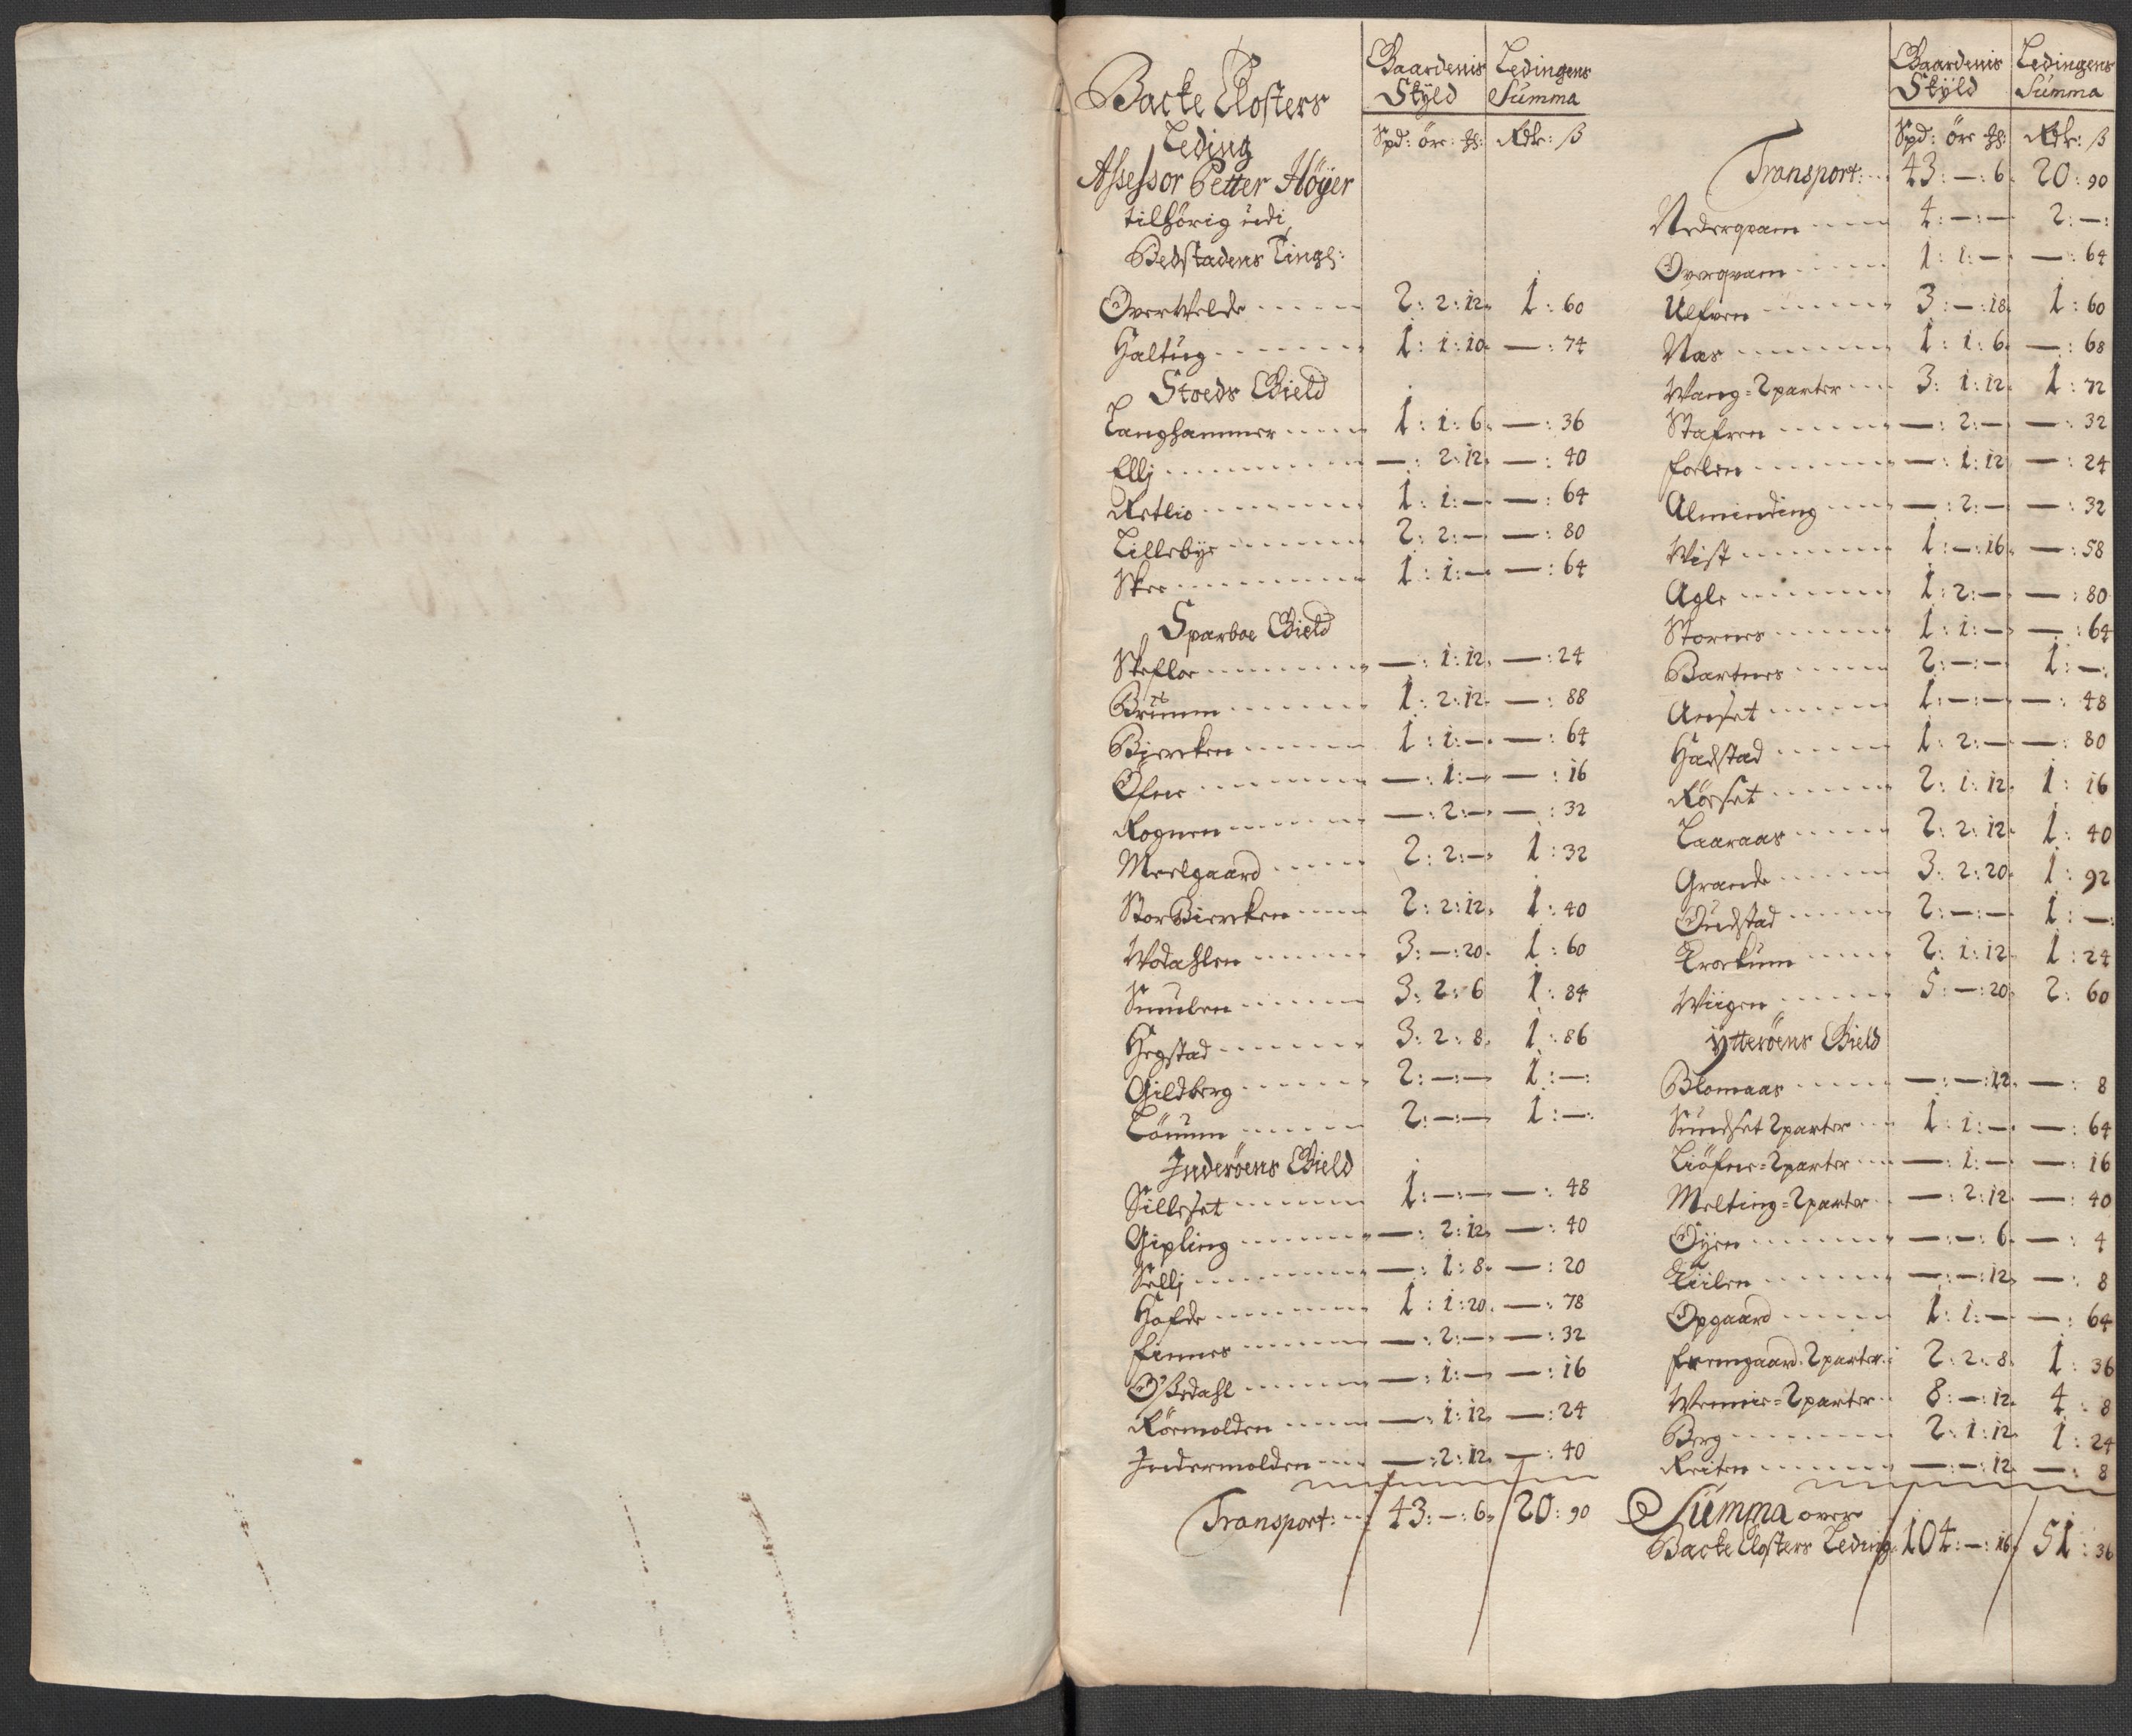 Backe Closters
Leding
Assessor Petter Höyer
tilhörig udi
Bedstadens Tingl:
Gaardenis Skyld | Ledingens Summa
Spd: öre: | Rdr: ß
OverVelde 2: 2: 12 | 1: 60
Haltug 1: 1: 10 | —: 74
Stoeds Gield
Langhammer 1: 1: 6 | —: 36
Ellj —: 2: 12 | —: 40
Retlio 1: 1: — | —: 64
Lillebye 2: 2: — | —: 80
Skee 1: 1: — | —: 64
Sparboe Gield
Skefloe —: 1: 12 | —: 24
Bruum 1: 2: 12 | —: 88
Biercken 1: 1: — | —: 64
Öfne —: 1: — | —: 16
Rognen —: 2: — | —: 32
Meelgaard 2: 2: — | 1: 32
StorBiercken 2: 2: 12 | 1: 40
Wodahlen 3: —: 20 | 1: 60
Smulen 3: 2: 6 | 1: 84
Hegstad 3: 2: 8 | 1: 86
Gildberg 2: —: — | 1: —:
Löuum 2: —: — | 1: —:
Inderöens Gield
Silleset 1: —: — | —: 48
Gipling —: 2: 12 | —: 40
Sellj —: 1: 8 | —: 20
Hofde 1: 1: 20 | —: 78
Finnes —: 2: — | —: 32
Oßedahl —: 1: — | —: 16
Röemolden —: 1: 12 | —: 24
Indermolden —: 2: 12 | —: 40
Transport: 43: —: 6 | 20: 90
Gaardenis Skyld | Ledingens Summa
Spd: öre | Rdr: ß
Transport: 43: —: 6 | 20: 90
Nederqvam 4: —: — | 2: —:
Overqvam 1: 1: — | —: 64
Ulfven 3: —: 18 | 1: 60
Nas 1: 1: 6 | —: 68
Wang = 2 parter 3: 1: 12 | 1: 72
Stafren —: 2: — | —: 32
Foelen —: 1: 12 | —: 24
Alminding —: 2: — | —: 32
Wist 1: —: 16 | —: 58
Agle 1: 2: — | —: 80
Stornes 1: 1: — | —: 64
Bartnes 2: —: — | 1: —:
Aunset 1: —: — | —: 48
Hadstad 1: 2: — | —: 80
Röeset 2: 1: 12 | 1: 16
Laaraas 2: 2: 12 | 1: 40
Grande 3: 2: 20 | 1: 92
Oudstad 2: —: — | 1: —:
Krockum 2: 1: 12 | 1: 24
Wiigen 5: —: 20 | 2: 60
Ytteröens Gield
Blomaas —: —: 12 | —: 8
Sundset 2 parter 1: 1: — | —: 64
Liöfne = 2 parter —: 1: — | —: 16
Melting = 2 parter —: 2: 12 | —: 40
Öyen —: —: 6 | —: 4
Kiilen —: —: 12 | —: 8
Opgaard 1: 1: — | —: 64
Fremgaard 2 parter 2: 2: 8 | 1: 36
Wennie = 2 parter 8: —: 12 | 4: 8
Berg 2: 1: 12 | 1: 24
Reiten —: —: 12 | —: 8
Summa over
Backe Closters Leding 104: —: 16 | 51: 36